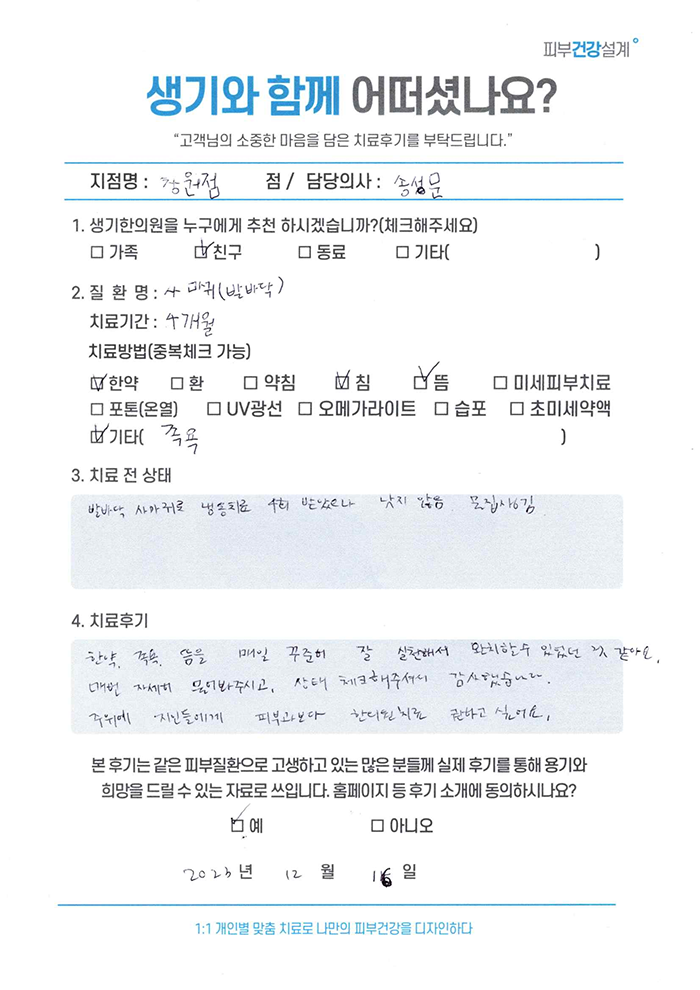 피부건강설계
생기와 함께 어떠셨나요?
“고객님의 소중한 마음을 담은 치료후기를 부탁드립니다.”
지점명 : 창원점 점 / 담당의사 : 송성문
1. 생기한의원을 누구에게 추천 하시겠습니까?(체크해주세요)
□ 가족 ☑ 친구 □ 동료 □ 기타( )
2. 질 환 명 : 사마귀(발바닥)
치료기간 : 4개월
치료방법(중복체크 가능)
☑ 한약 □ 환 □ 약침 ☑ 침 ☑ 뜸 □ 미세피부치료
□ 포톤(온열) □ UV광선 □ 오메가라이트 □ 습포 □ 초미세약액
☑ 기타( 족욕 )
3. 치료 전 상태
발바닥 사마귀로 냉동치료 4회 받았으나 낫지 않음. 물집생김
4. 치료후기
한약, 족욕, 뜸을 매일 꾸준히 잘 실천해서 완치할수 있었던 것 같아요,
매번 자세히 물어봐주시고, 상태 체크해주셔서 감사했습니다.
주위에 지인들에게 피부과보다 한의원치료 권하고 싶어요,
본 후기는 같은 피부질환으로 고생하고 있는 많은 분들께 실제 후기를 통해 용기와
희망을 드릴 수 있는 자료로 쓰입니다. 홈페이지 등 후기 소개에 동의하시나요?
☑ 예 □ 아니오
2023년 12 월 16 일
1:1 개인별 맞춤 치료로 나만의 피부건강을 디자인하다